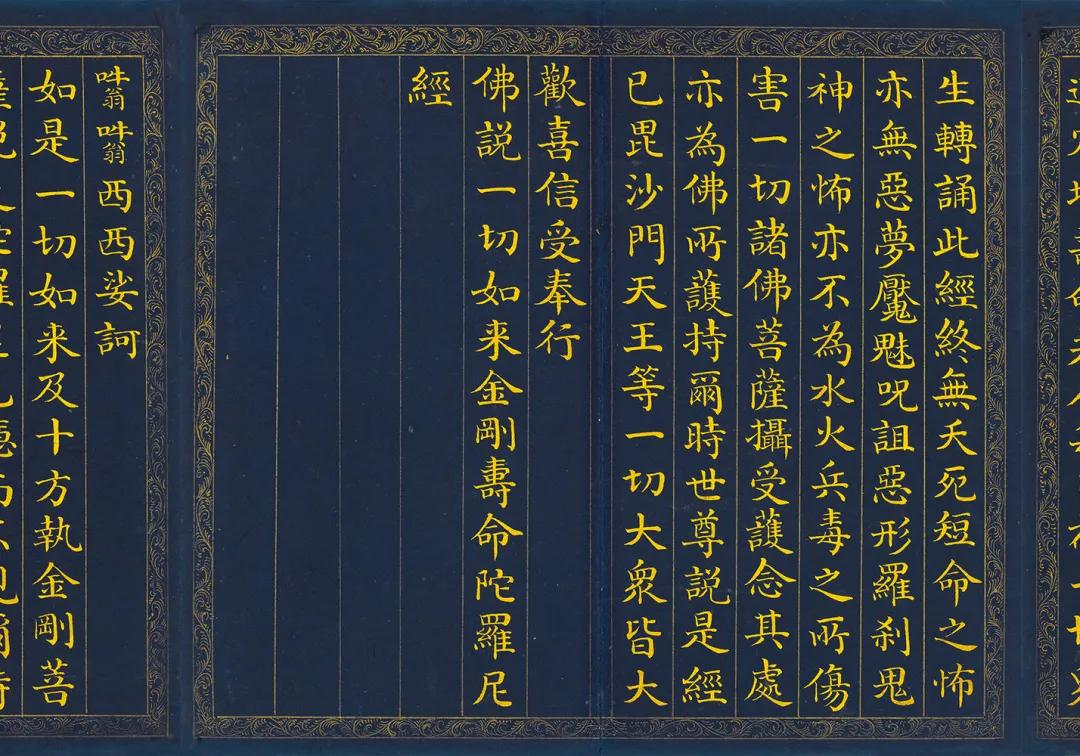 生轉誦此經終無夭死短命之怖
亦無惡夢魘魅呪詛惡形羅刹鬼
神之怖亦不為水火兵毒之所傷
害一切諸佛菩薩攝受護念其處
亦為佛所護持爾時世尊説是經
已毘沙門天王等一切大眾皆大
歡喜信受奉行
佛説一切如来金剛壽命陀羅尼
經
吽翁吽翁西西娑訶
如是一切如来及十方執金剛菩